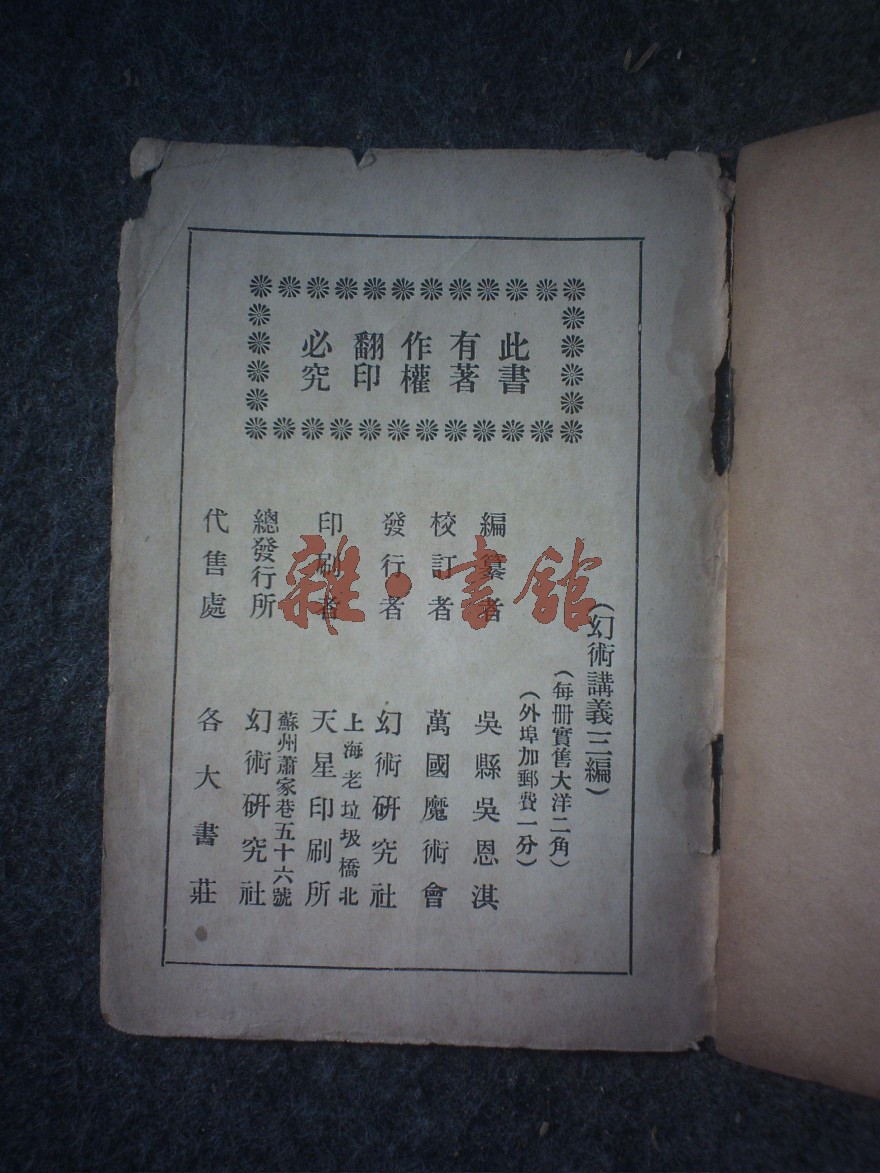 此書
有著
作權
翻印
必究
（幻術講義三編）
（每冊實售大洋二角）
（外埠加郵費一分）
編纂者 吳縣吳恩淇
校訂者 萬國魔術會
發行者 幻術硏究社
上海老垃圾橋北
印刷者 天星印刷所
蘇州蕭家巷五十六號
總發行所 幻術硏究社
代售處 各大書莊
雜·書館